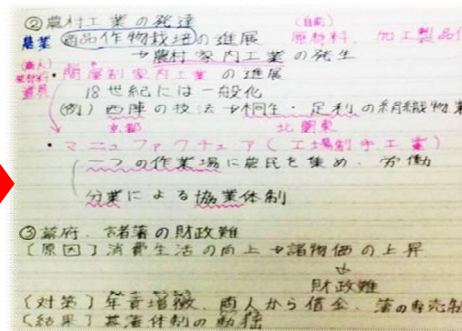 ②農村工業の発達 (自前)
農業 商品作物栽培の進展 原材料、加工製品
→農村家内工業の発生
(商人)
原材料 道具 ・問屋制家内工業の進展
18世紀には一般化
(例) 西陣の技法→桐生・足利の絹織物業
京都 北関東
・マニュファクチュア(工場制手工業)
一つの作業場に農民を集め、労働
分業による協業体制
③幕府、諸藩の財政難
[原因] 消費生活の向上→諸物価の上昇
↓
財政難
(対策) 年貢増徴、商人から借金、藩の専売制
(結果) 幕藩体制の動揺